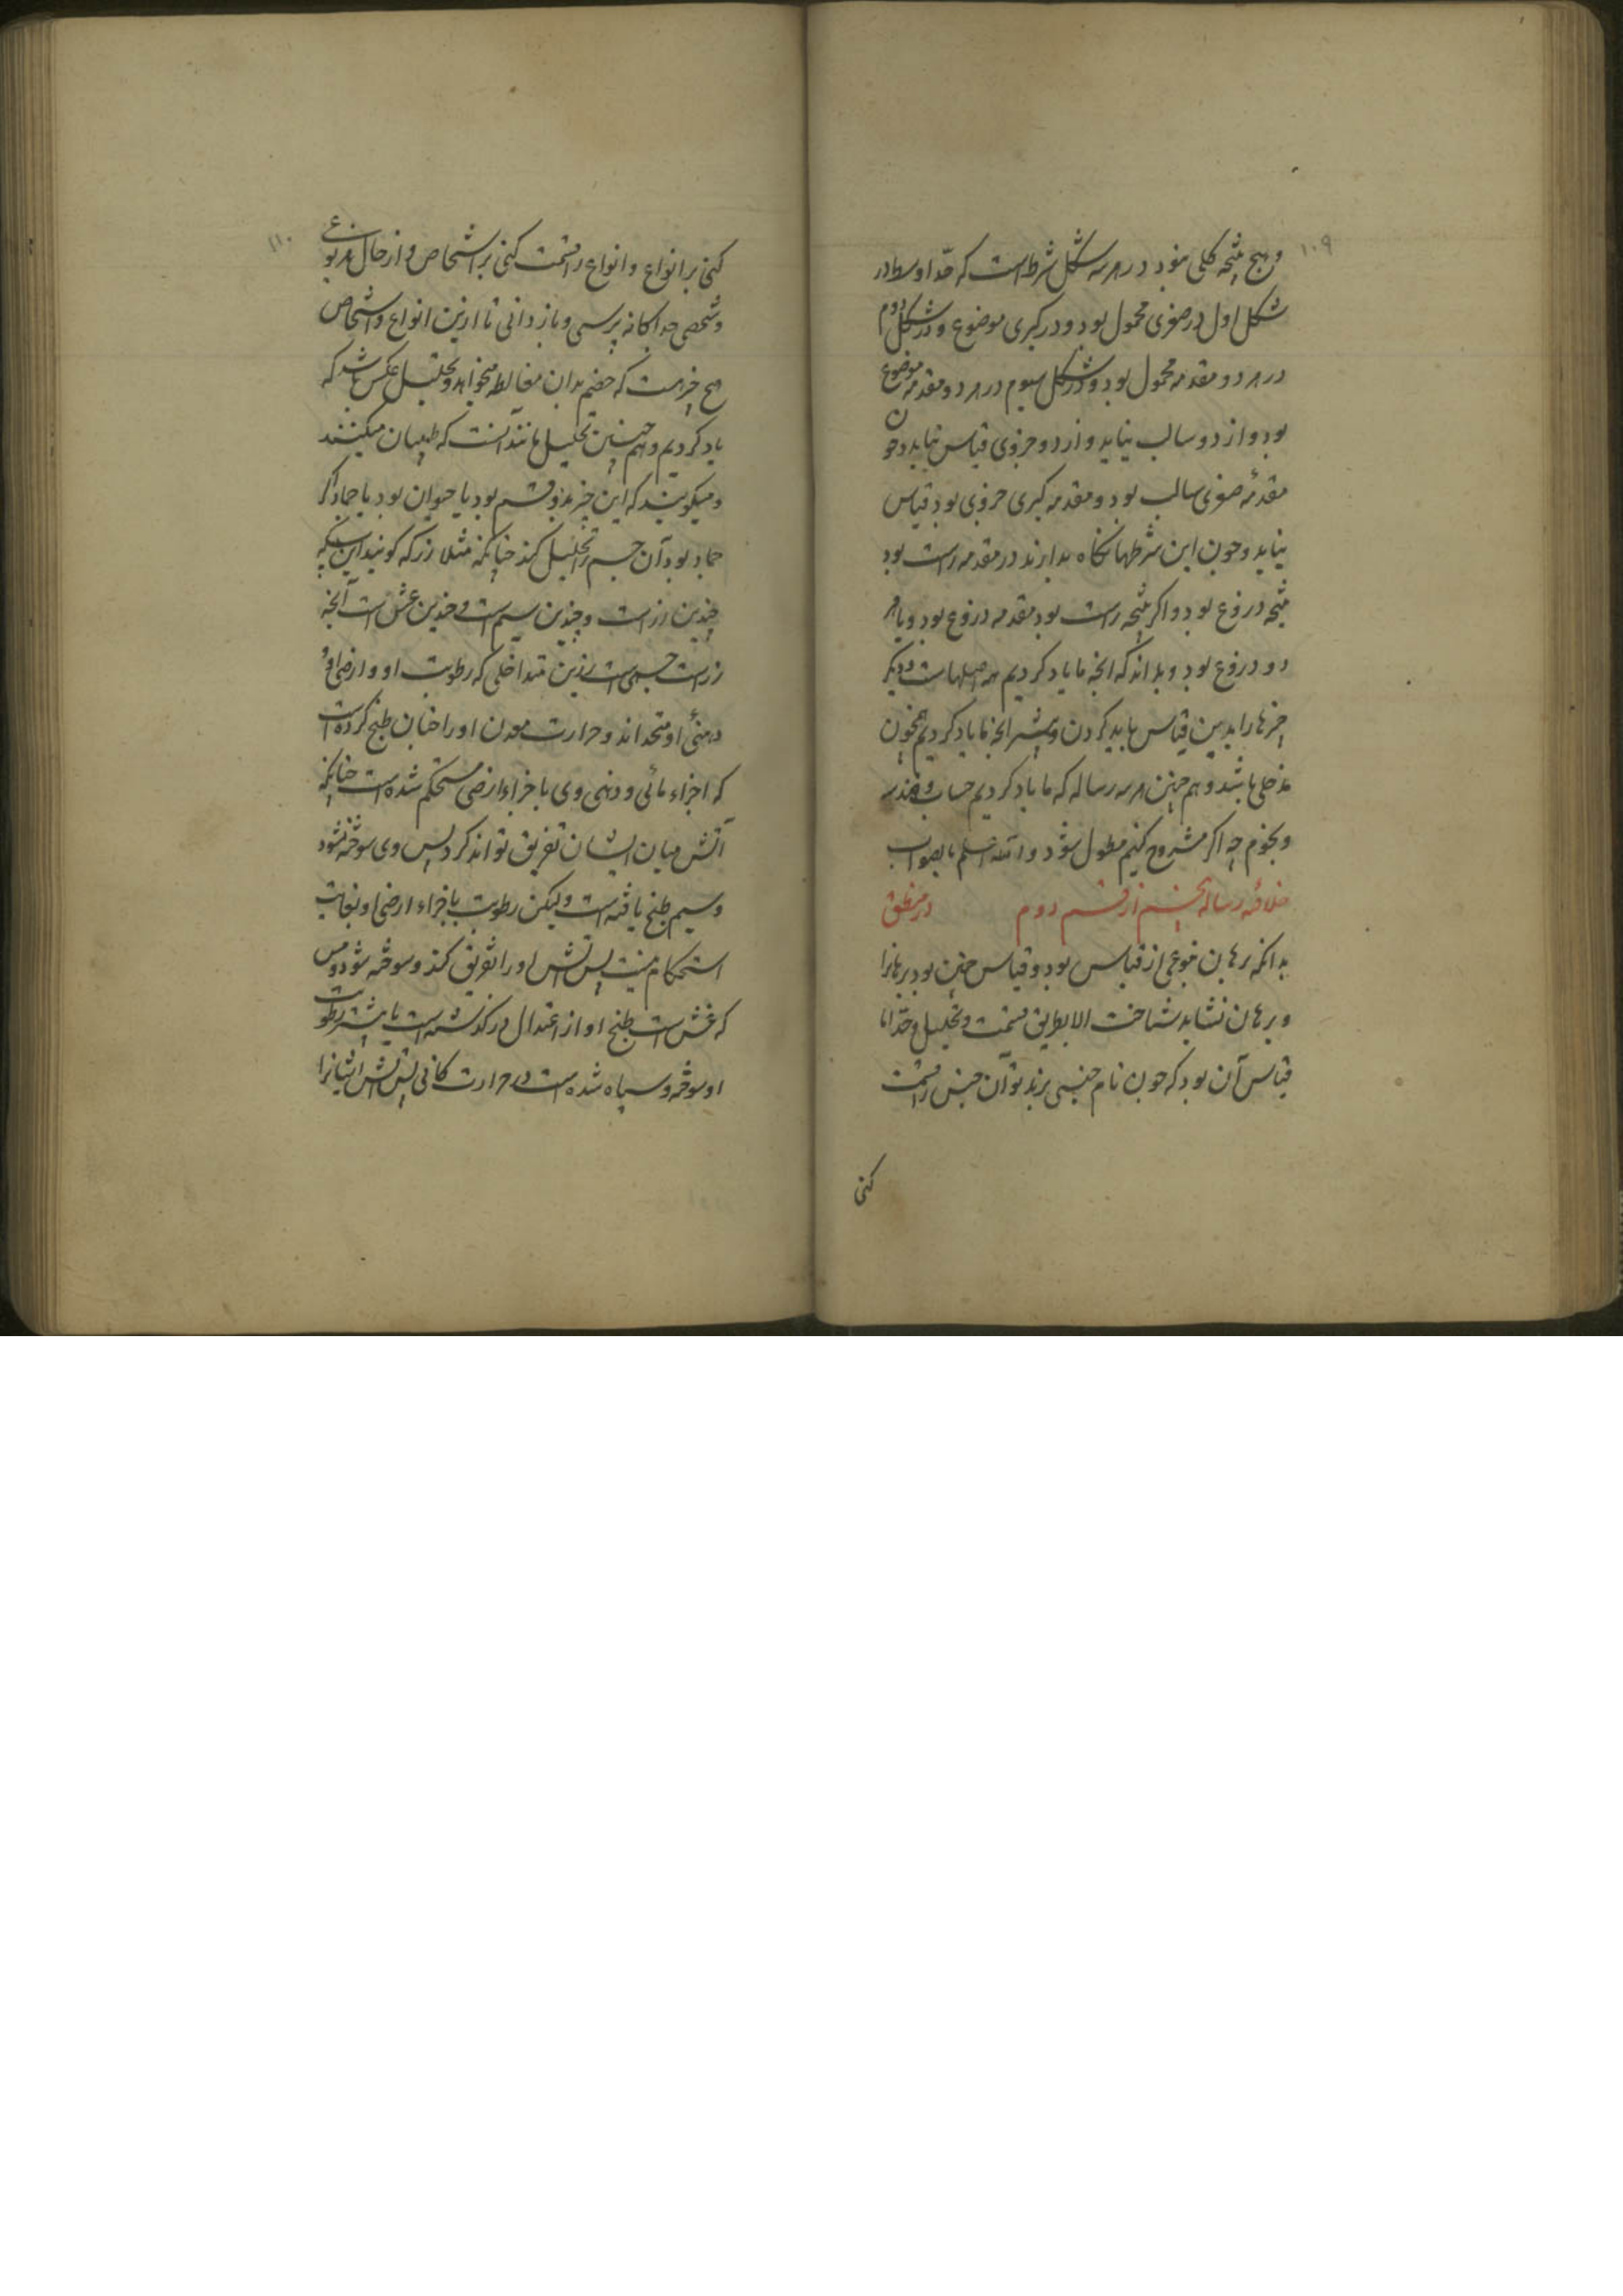 ۱۰۹
و هیچ نتیجه کلی نبود در هر سه شکل شرط است که حد اوسط در
شکل اول در صغری محمول بود و در کبری موضوع و در شکل دوم
در هر دو مقدمه محمول بود و در شکل سیوم در هر دو مقدمه موضوع
بود و از دو سالب نیاید و از دو جزوی قیاس نیاید و چون
مقدمه صغری سالب بود و مقدمه کبری جزوی بود قیاس
نیاید و چون این شرطها نگاه ندارند در مقدمه راست بود
نتیجه دروغ بود و اگر نتیجه راست بود مقدمه دروغ بود و یا هر
دو دروغ بود و بدانکه انچه ما یاد کردیم همه اصلهاست و دیگر
چیزها را بدین قیاس باید کردن و بیشتر انچه ما یاد کردیم همچون
مدخلی باشد و هم چنین هر سه رساله که ما یاد کردیم حساب و هندسه
و نجوم چه اگر مشروح کنیم مطول شود و الله اعلم بالصواب
خلاصه رساله پنجم از قسم دوم در منطق
بدانکه برهان نوعی از قیاس بود و قیاس جنس بود برهانرا
و برهان نشاید شناخت الا بطریق قسمت و تحلیل و حد اما
قیاس آن بود که چون نام جنسی برند تو آن جنس را قسمت
کنی
۱۱۰
کنی بر انواع و انواع را قسمت کنی بر اشخاص و از حال هر نوعی
و شخصی جداگانه پرسی و باز دانی تا ازین انواع و اشخاص
هیچ چیز هست که خصم بدان مغالطه میخواهد و تحلیل عکس باشد که
یاد کردیم و هم چنین تحلیل مانند آنست که طبیبان میکنند
و میگویند که این چیز بدو قسم بود یا حیوان بود یا جماد اگر
جماد بود آن جسم را تحلیل کند چنانکه مثلا زر که گویند این سبیکه
چندین زر است و چندین سیم است و چندین غش است آنچه
زر است جسمی است رزین متداخلی که رطوبت او و ارضی او و
دهنی او متحداند و حرارت معدن او را چنان طبخ کرده است
که اجزاء مائی و دهنی وی با جزاء ارضی مستحکم شده است چنانکه
آتش میان ایشان تفریق تواند کرد پس وی سوخته نشود
و سیم طبخ یافته است ولیکن رطوبت با جزاء ارضی او بغایت
استحکام نیست پس آتش او را تفریق کند و سوخته شود و مس
که غش است طبخ او از اعتدال در گذشته است یا بیشتر رطوبت
او سوخته و سیاه شده است در حرارت کانی پس آتش ایشانرا